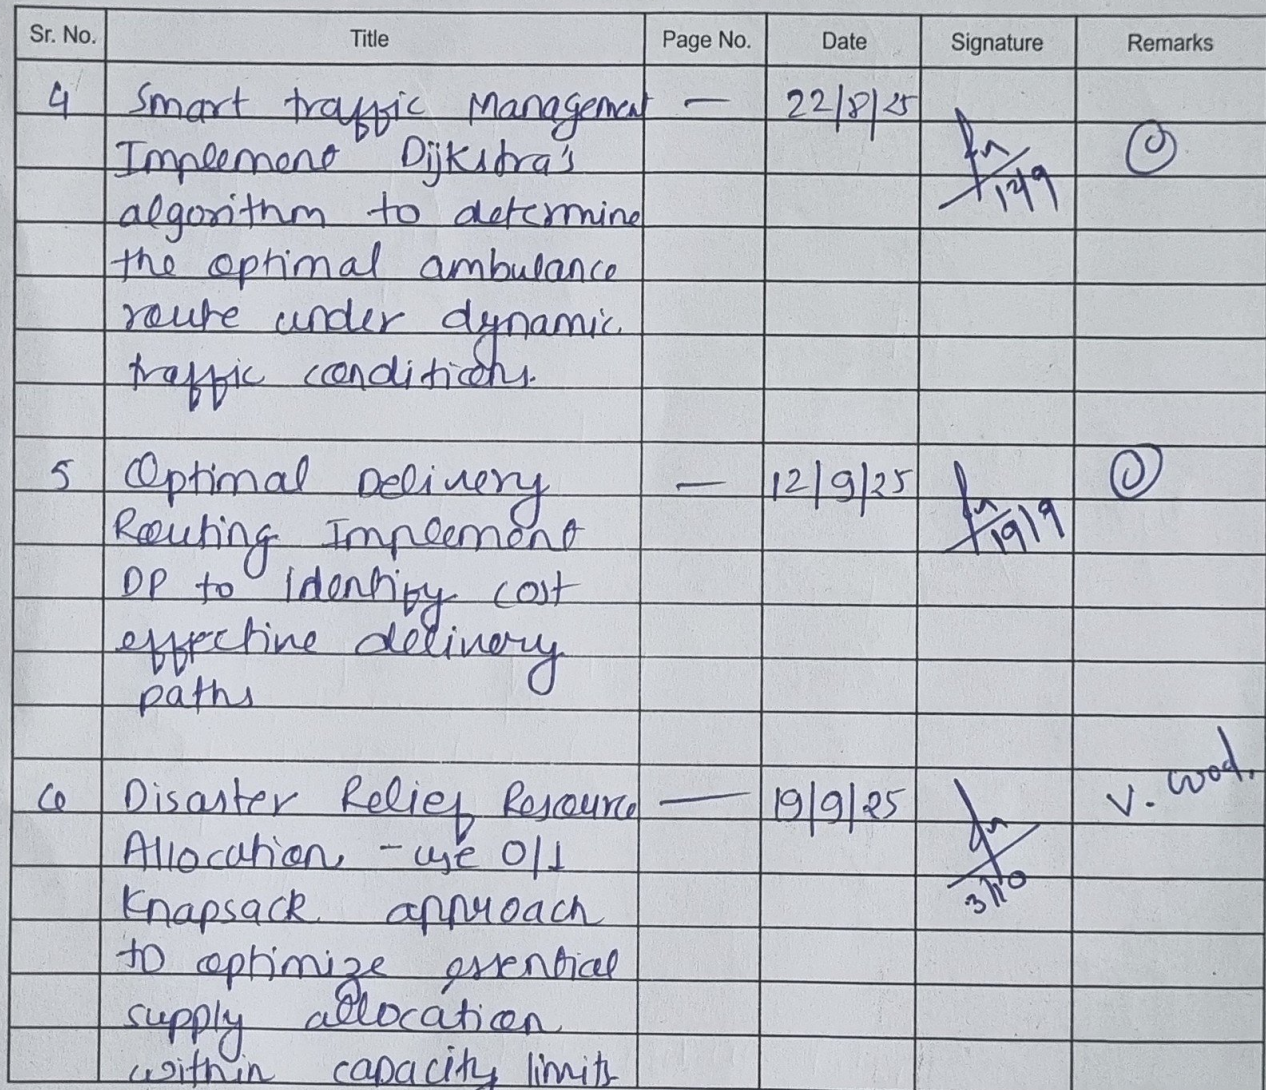 Sr. No. Title Page No. Date Signature Remarks
4 Smart traffic Management — 22/8/25
Implement Dijkstra's
12/9
algorithm to determine
the optimal ambulance
route under dynamic
traffic conditions.
5 Optimal Delivery — 12/9/25
Routing Implement
19/9
DP to identify cost
effective delivery
paths
6 Disaster Relief Resource — 19/9/25 V. Good.
Allocation - use 0/1
Knapsack approach
3/10
to optimize essential
supply allocation
within capacity limits